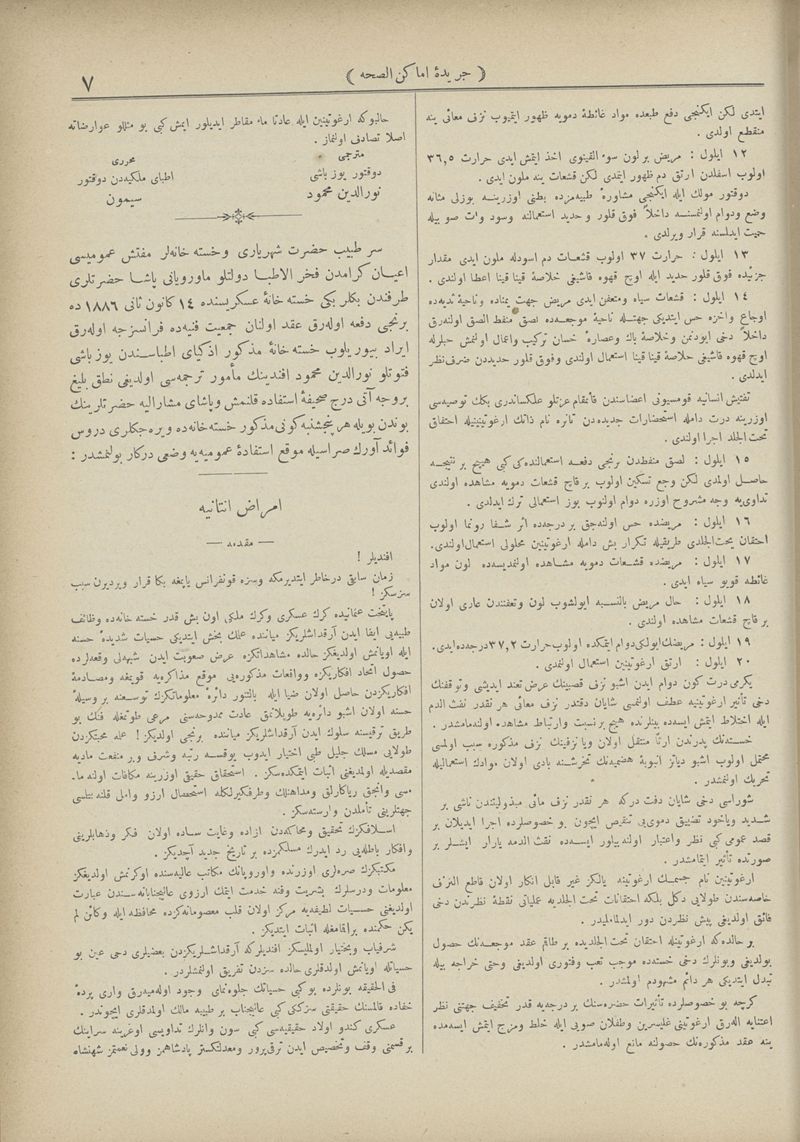 ﴿ جريدۀ اماكن الصحه ﴾
٧
ايتدى لكن ايكنجى دفع طبعده مواد غائطۀ دمويه ظهور ايتميوب نزف معائى ينه
منقطع اولدى .
١٢ ايلول : مريض بر لون سوء القنيوى اخذ ايتمش ايدى حرارت ٣٦,٥
اولوب اسفلدن ارتق دم ظهور ايتمدى لكن قشعات ينه ملون ايدى .
دوقتور مولك ايله ايكنجى مشاوره طبيه‌مزده بطنى اوزرينه بوزلى مثانه
وضع ودوام اولنمسنه داخلاً فوق قلور و حديد استعمالنه وسود وات صو يله
حميت ايدلسنه قرار ويرلدى .
١٣ ايلول : حرارت ٣٧ اولوب قشعات دم اسودله ملون ايدى مقدار
جزئيده فوق قلور حديد ايله اوچ قهوه قاشيغى خلاصۀ قينا قينا اعطا اولندى .
١٤ ايلول : قشعات سياه ومتعفن ايدى مريض جهت يمناده وناحيۀ ثدييه‌ده
اوجاع واخزه حس ايتديكى جهتله ناحيۀ موجعه‌ده لصق منفط الصق اولنه‌رق
داخلاً دخى ايودنمن وخلاصۀ باك وعصارۀ خسان تركيب واعمال اولنمش حبلرله
اوچ قهوه قاشيغى خلاصۀ قينا قينا استعمال اولندى وفوق قلور حديددن صرف نظر
ايدلدى .
تفتيش انسانيه قومسيونى اعضاسندن قائمقام عزتلو علكساندرى بكك توصيه‌سى
اوزرينه درت دامله استحضارات جديده‌دن تانره نام ذاتك ارغوتينيله احتقاق
تحت الجلد اجرا اولندى .
١٥ ايلول : لصق منفطدن برنجى دفعه استعمالنده‌كى كبى هيچ بر نتيجه
حاصل اولمدى لكن وجع تسكين اولوب بر قاچ قشعات دمويه مشاهده اولندى
تداوى‌يه وجه مشروح اوزره دوام اولنوب بوز استعمالى ترك ايدلدى .
١٦ ايلول : مريضده حس اولنه‌جق بر درجه‌ده اثر شفا رونما اولوب
احتقان تحت‌الجلدى طريقيله تكرار بش دامله ارغوتينين محلولى استعمال اولندى .
١٧ ايلول : مريضده قشعات دمويه مشاهده اولنمديسه‌ده لون مواد
غائطه قويو سياه ايدى .
١٨ ايلول : حال مريض بالنسبه ايولشوب لون وتعفندن عارى اولان
بر قاچ قشعات مشاهده اولندى .
١٩ ايلول : مريضك ايولكى دوام ايتمكده اولوب حرارت ٣٧,٢ درجه‌ده ايدى .
٢٠ ايلول : ارتق ارغوتينين استعمال اولنمدى .
يكرمى درت كون دوام ايدن اشبو نزف قصبينك عرض تعند ايديشى وتوقفنك
دخى تأثير ارغوتينيه عطف اولنمسى شايان دقتدر نزف معائى هر نقدر نفث الدم
ايله اختلاط ايتمش ايسه‌ده بينلرنده هيچ بر نسبت وارتباط مشاهده اولنه‌مامشدر .
خسته‌نك پدرندن ارثاً منتقل اولان ويا نزفينك نزف مذكوره سبب اولمسى
محتمل اولوب اشبو دياتز انبوبۀ هضميه‌نك تخرشنه بادى اولان موادك استعماليله
تحريك اولنمشدر .
شوراسى دخى شايان دقت دركه هر نقدر نزف مائى مبذوليتندن ناشى بر
شديد وياخود تضييق دموى‌يى تنقيص ايچون بو خصوصلرده اجرا ايديلان بر
قصد عمومى كبى نظر واعتبار اولنه‌بيلور ايسه‌ده نفث الدمه يارار ايشلر بر
صورتده تأثير ايتمامشدر .
ارغوتينين نام جسمك ارغوتينه يالكز غير قابل انكار اولان قاطع النزف
خاصه‌سندن طولايى دكل بلكه احتقانات تحت الجلديه عملياتى نقطۀ نظرندن دخى
فائق اولديغى پيش نظردن دور ايدلماملیدر .
بر حالده‌كه ارغوتينله احتقان تحت الجلديده بر طاقم عقد موجعه‌نك حصول
بولديغى وبونلرك دخى خسته‌ده موجب تعب وفتورى اولديغى وحتى خراجه بيله
تبدل ايتديكى هر دائم مشهودم اولمشدر .
كرچه بو خصوصلرده تأثيرات حضره‌سنك بر درجه‌يه قدر تخفيف جهتنى نظر
اعتنايه اله‌رق ارغوتينى غليسرين وطفلان صويى ايله خلط ومزج ايتمش ايسه‌مده
ينه عقد مذكوره‌نك حصولنه مانع اوله‌مامشدر .
حالبوكه ارغوتينين ايله عادتا ماء مقاطر ايديلور ايمش كبى بو مثللو عوارضاته
اصلا تصادف اولنماز .
مترجمى
محررى
دوقتور يوز باشى
اطباى ملكيه‌دن دوقتور
نورالدين محمود
سيمون
سر طبيب حضرت شهريارى و خسته خانه‌لر مفتش عموميسى
اعيان كرامدن فخر الاطبا دولتلو ماورويانى پاشا حضرتلرى
طرفندن بكلر بكى خسته خانۀ عسكريسنده ١٤ كانون ثانى ١٨٨٦ ده
برنجى دفعه اوله‌رق عقد اولنان جمعيت فنيه‌ده فرانسزجه اوله‌رق
ايراد بيوريلوب خسته خانۀ مذكور اذكياى اطباسندن يوز باشى
فتوتلو نورالدين محمود افندينك مأمور ترجمه‌سى اولديغى نطق بليغ
بروجه آتى درج صحيفۀ استفاده قلنمش وپاشاى مشاراليه حضرتلرينك
بوندن بويله هر پنجشنبه كونى مذكور خسته خانه‌ده ويره جكلرى دروس
فوائد آورك صراسيله موقع استفادۀ عموميه‌يه وضعى دركار بولنمشدر :
امراض انتانيه
— مقدمه —
افنديلر !
زمان سابق درخاطر ايتديرمكه وسزه قونفرانس يابمغه بكا قرار ويرديرن سبب
سزسكز !
پايتخت عثمانيده كرك عسكرى وكرك ملكى اون بش قدر خسته خانه‌ده وظائف
طبيه‌يى ايفا ايدن آرقداشلريكز ميانده عمك بخش ايتديكى حسيات شديدۀ حسنه
ايله اويانمش اولديغكز حالده مشاهداتكزه عرض صعوبت ايدن شبهه‌لى وقعه‌لرده
حصول اتحاد افكاريكزه وواقعات مذكوره‌يى موقع مذاكره‌يه قويمغه ومصادمۀ
افكاريكزدن حاصل اولان ضيا ايله بالتنور دائرۀ معلوماتكزك توسعنه بر وسيلۀ
حسنه اولان اشبو دائره‌يه طوپلانمق عادت ممدوحه‌سنى مرعى طوتمغله فنك بو
طريق ترقيسنه سلوك ايدن آرقداشلريكز ميانده برنجى اولديكز ! عله محبتكزدن
طولايى مسلك جليل طبى اختيار ايدوب يوقسه رتبه وشرف وبر منفعت ماديه
مقصديله اولمديغنى اثبات ايتمكده‌سكز . استحقاق حقيقى اوزرينه مكافات اولنه ما-
مسى وانجق رياكارلق ومداهنلك وطرفكيرلكله استحصال ارزو وامل قلنه‌بيلمسى
جهتلرينى تأملدن وارسته‌سكز .
اسلافكزك تحقيق ومحاكه‌دن ازاده وغايت ساده اولان فكر وذهابلرينى
وافكار باطله‌يى رد ايدرك مسلكمزده بر تاريخ جديد آچديكز .
مكتبكزك صره‌لرى اوزرنده واوروپانك مكاتب عاليه‌سنده اوكرنمش اولديغكز
معلومات ودرسلرك بشريت وقنه خدمت ايتمك ارزوى عاليجنابانه‌سندن عبارت
اولديغى حسيات لطيفه‌يه مركز اولان قلب معصومانه‌كزده محافظه ايله وكائن لم
يكن حكمنده براقمامغله اثبات ايتديكز .
شرفياب وبختيار اولمليسكز افنديلركه آرقداشلريكزدن بعضيلرى دخى عين بو
حسياتله اويانمش اولدقلرى حالده سزدن تفريق اولنمشلردر .
فى الحقيقه بونلرده بو كبى حسياتك جلوه‌نماى وجود اوله‌ميه‌رق وارى پردۀ
خفاده قالمسنك حقيقتى سزككى كبى عاليجناب بر طبيبه مالك اولمدقلرى ايچوندر .
عسكرى كندو اولاد حقيقيه‌سى كبى سون وانلرك تداويسى اوغرينه سراينك
بر قسمنى وقف وتخصيص ايدن ترقى‌پرور ومعدلتكستر پادشاهمز وولى نعمتمز شهنشاه